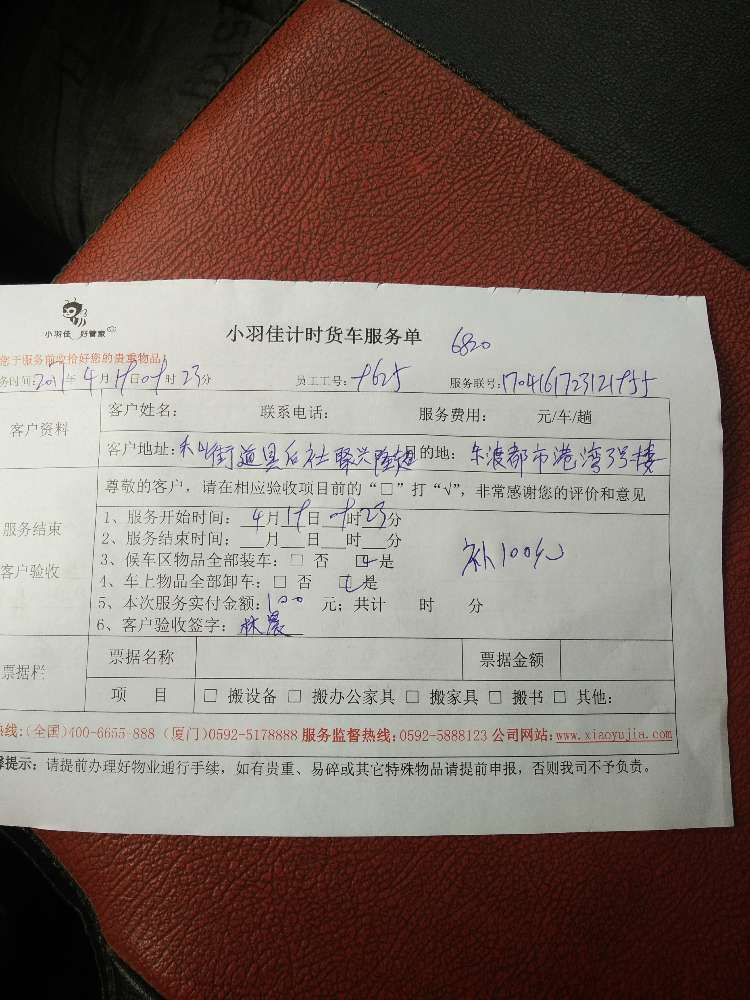 小羽佳 好管家
小羽佳计时货车服务单
6820
您于服务前收拾好您的贵重物品!
务时间:2017年4月19日09时23分 员工工号:9625 服务联号:1704161723121955
客户资料
客户姓名: 联系电话: 服务费用: 元/车/趟
客户地址:禾山街道县后社聚兴隆超 目的地: 东渡都市港湾3号楼
尊敬的客户，请在相应验收项目前的“□”打“√”，非常感谢您的评价和意见
服务结束
客户验收
1、服务开始时间: 4月19日09时23分
2、服务结束时间: 月 日 时 分
3、候车区物品全部装车: □ 否 □是
4、车上物品全部卸车: □ 否 □是
补100元
5、本次服务实付金额:100 元; 共计 时 分
6、客户验收签字: 林晨
票据栏
票据名称 票据金额
项 目 □ 搬设备 □ 搬办公家具 □ 搬家具 □ 搬书 □ 其他:
热线:(全国)400-6655-888 (厦门)0592-5178888 服务监督热线:0592-5888123 公司网站:www.xiaoyujia.com
提示: 请提前办理好物业通行手续，如有贵重、易碎或其它特殊物品请提前申报，否则我司不予负责。